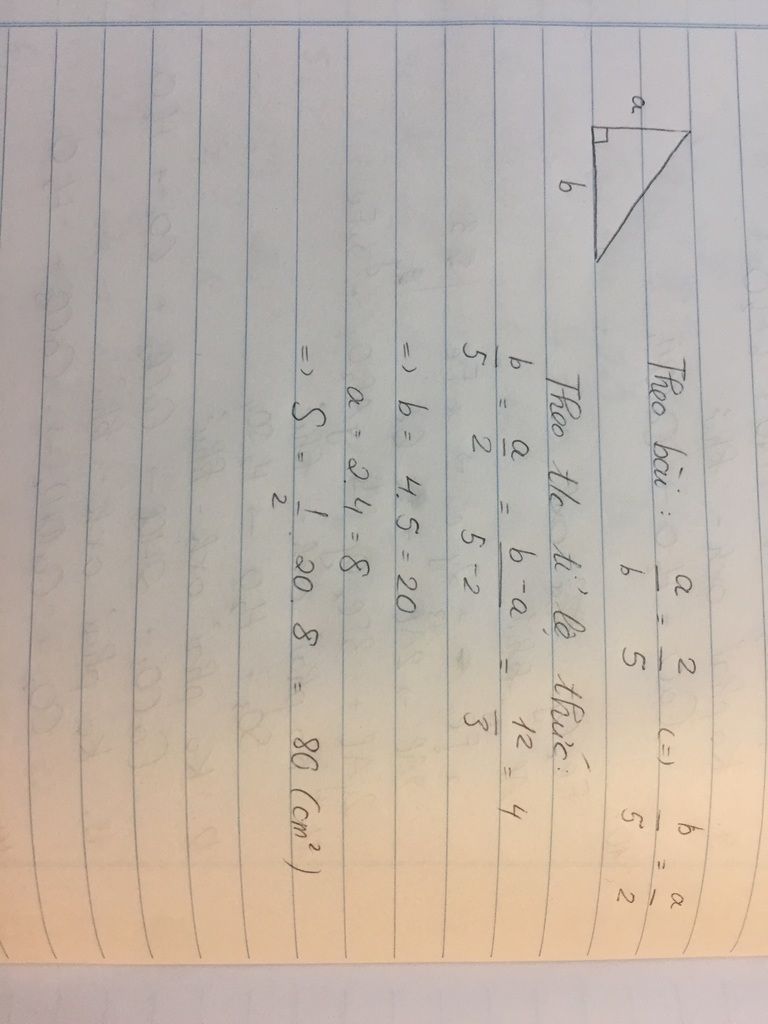 a
b
Theo bài : a/b = 2/5 (=) b/5 = a/2
Theo t/c tỉ lệ thức:
b/5 = a/2 = b-a/5-2 = 12/3 = 4
=) b = 4.5 = 20
a = 2.4 = 8
=) S = 1/2 . 20 . 8 = 80 (cm²)